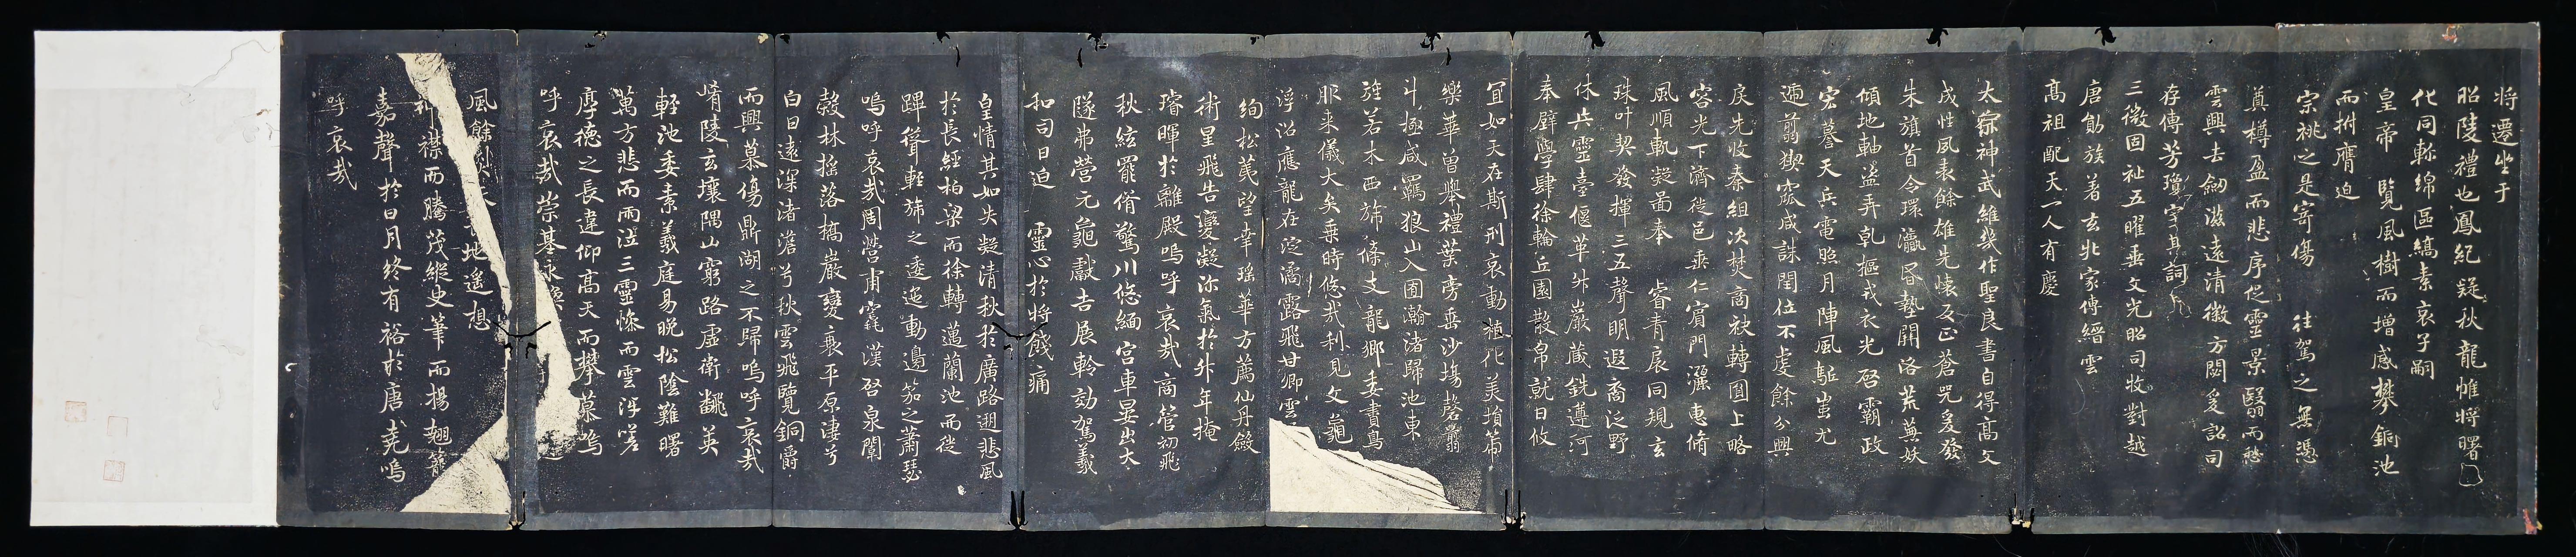 将遷坐于
昭陵禮也鳳紀疑秋龍帷將曙
化同軫綿區縞素哀子嗣
皇帝覽風樹而增感攀銅池
而拊膺迫
宗祧之是寄傷往駕之無憑
奠樽盈而悲序促靈景翳而愁
雲興去劒滋遠清徽方閟爰詔司
存傳芳瓊字其詞
三微固祉五曜垂文光昭司牧對越
唐勛族著玄北家傳縉雲
高祖配天一人有慶
太宗神武維幾作聖良書自得高文
成性夙表餘雄先懐反正蒼咒爰發
朱旗首令環瀛昏墊開洛荒蕪妖
傾地軸盜弄乾樞戎衣光啓霸政
宏謩天兵電照月陣風駈蚩尤
遄翦猰窳咸誅閏位不虔餘分興
戻先收秦組次焚商袂轉圓上略
容光下濟徙邑垂仁賓門灑惠脩
風順軌凝㫄奉睿青扆同規玄
珠叶契發揮三五聲明遐裔泛野
休兵靈臺偃革升巖藏銑遵河
奉璧學肆徐輪丘園散帛就日攸
冝如天在斯刑哀動植化美塤箎
樂華曽舉禮葉旁垂沙塲罄翦
斗極咸羈狼山入囿瀚渚歸池東
旌若木西旆條支龍郷委賮鳥
服来儀大矣乗時悠哉利見文龜
浮沼應龍在淀濡露飛甘卿雲
絢松茟望幸瑶華方薦仙丹斂
術星飛告變凝沴氣於升年掩
璿暉於離殿嗚呼哀哉商管初飛
秋絃罷脩驚川悠緬宫車晏出大
隧弗營元龜獻吉展軨効駕義
和司日迫靈心於将餞痛
皇情其如失凝清秋於廣路遡悲風
於長經柏梁而徐轉邁蘭池而從
蹕聲輕旆之逶迤動邊笳之蕭瑟
嗚呼哀哉周營甫窆漢啓泉闈
穀林摇落橋巖變衰平原凄兮
白日遠深渚澹兮秋雲飛覽銅爵
而興慕傷鼎湖之不歸嗚呼哀哉
崤陵玄壤隅山窮路虚衛飜英
輕池委素羲庭易晩松陰難曙
萬方悲而雨泣三靈慘而雲冱嗟
厚德之長違仰高天而攀慕嗚
呼哀哉崇基永
風餘 地遥想
神襟而騰茂縱史筆而揚翹籠
嘉聲於日月終有裕於唐堯嗚
呼哀哉